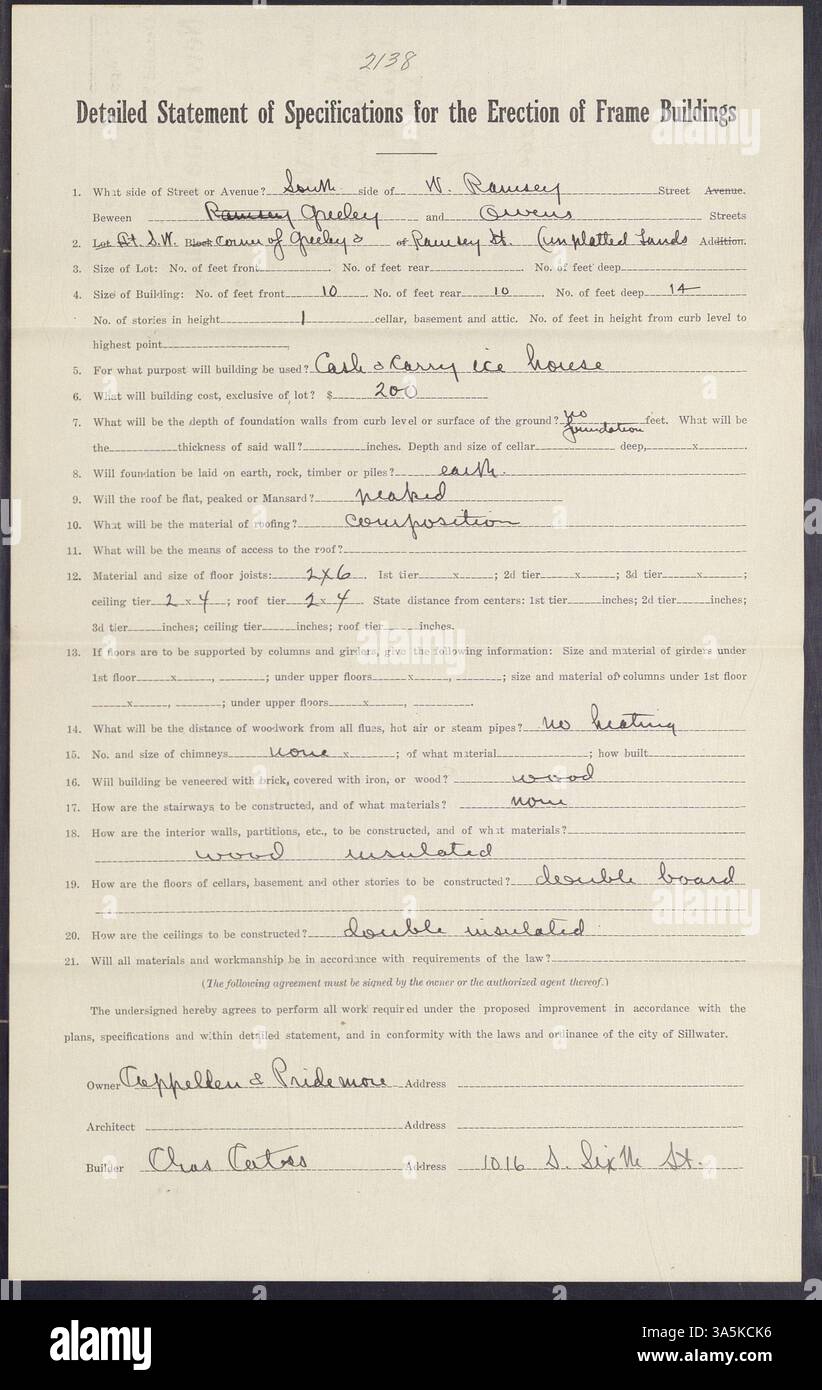 2138
Detailed Statement of Specifications for the Erection of Frame Buildings
1. What side of Street or Avenue? South side of W. Ramsey Street Avenue.
Beween Ramsey Greeley and Owens Streets
2. Lot St. S.W. Block corner of Greeley & of Ramsey St. (unplatted Lands Addition.
3. Size of Lot: No. of feet front . No. of feet rear . No. of feet deep
4. Size of Building: No. of feet front 10 . No. of feet rear 10 . No. of feet deep 14
No. of stories in height 1 cellar, basement and attic. No. of feet in height from curb level to
highest point ,
5. For what purpost will building be used? Cash & Carry ice house
6. What will building cost, exclusive of lot? $ 200
7. What will be the depth of foundation walls from curb level or surface of the ground? no foundation feet. What will be
the thickness of said wall? inches. Depth and size of cellar deep, x .
8. Will foundation be laid on earth, rock, timber or piles? earth.
9. Will the roof be flat, peaked or Mansard? peaked
10. What will be the material of roofing? composition
11. What will be the means of access to the roof?
12. Material and size of floor joists: 2x6 . 1st tier x ; 2d tier x ; 3d tier x ;
ceiling tier 2 x 4 ; roof tier 2 x 4 . State distance from centers: 1st tier inches; 2d tier inches;
3d tier inches; ceiling tier inches; roof tier inches.
13. If floors are to be supported by columns and girders, give the following information: Size and material of girders under
1st floor x , ; under upper floors x , ; size and material of columns under 1st floor
x , ; under upper floors x , .
14. What will be the distance of woodwork from all flues, hot air or steam pipes? no heating
15. No. and size of chimneys none x ; of what material ; how built
16. Will building be veneered with brick, covered with iron, or wood? wood
17. How are the stairways to be constructed, and of what materials? none
18. How are the interior walls, partitions, etc., to be constructed, and of what materials?
wood insulated
19. How are the floors of cellars, basement and other stories to be constructed? double board
20. How are the ceilings to be constructed? double insulated
21. Will all materials and workmanship be in accordance with requirements of the law?
(The following agreement must be signed by the owner or the authorized agent thereof.)
The undersigned hereby agrees to perform all work required under the proposed improvement in accordance with the
plans, specifications and within detailed statement, and in conformity with the laws and ordinance of the city of Sillwater.
Owner & Pridemore Address
Architect Address
Builder Chas Address 1016 S. Sixth St.
alamy
Image ID: 3A5KCK6
www.alamy.com